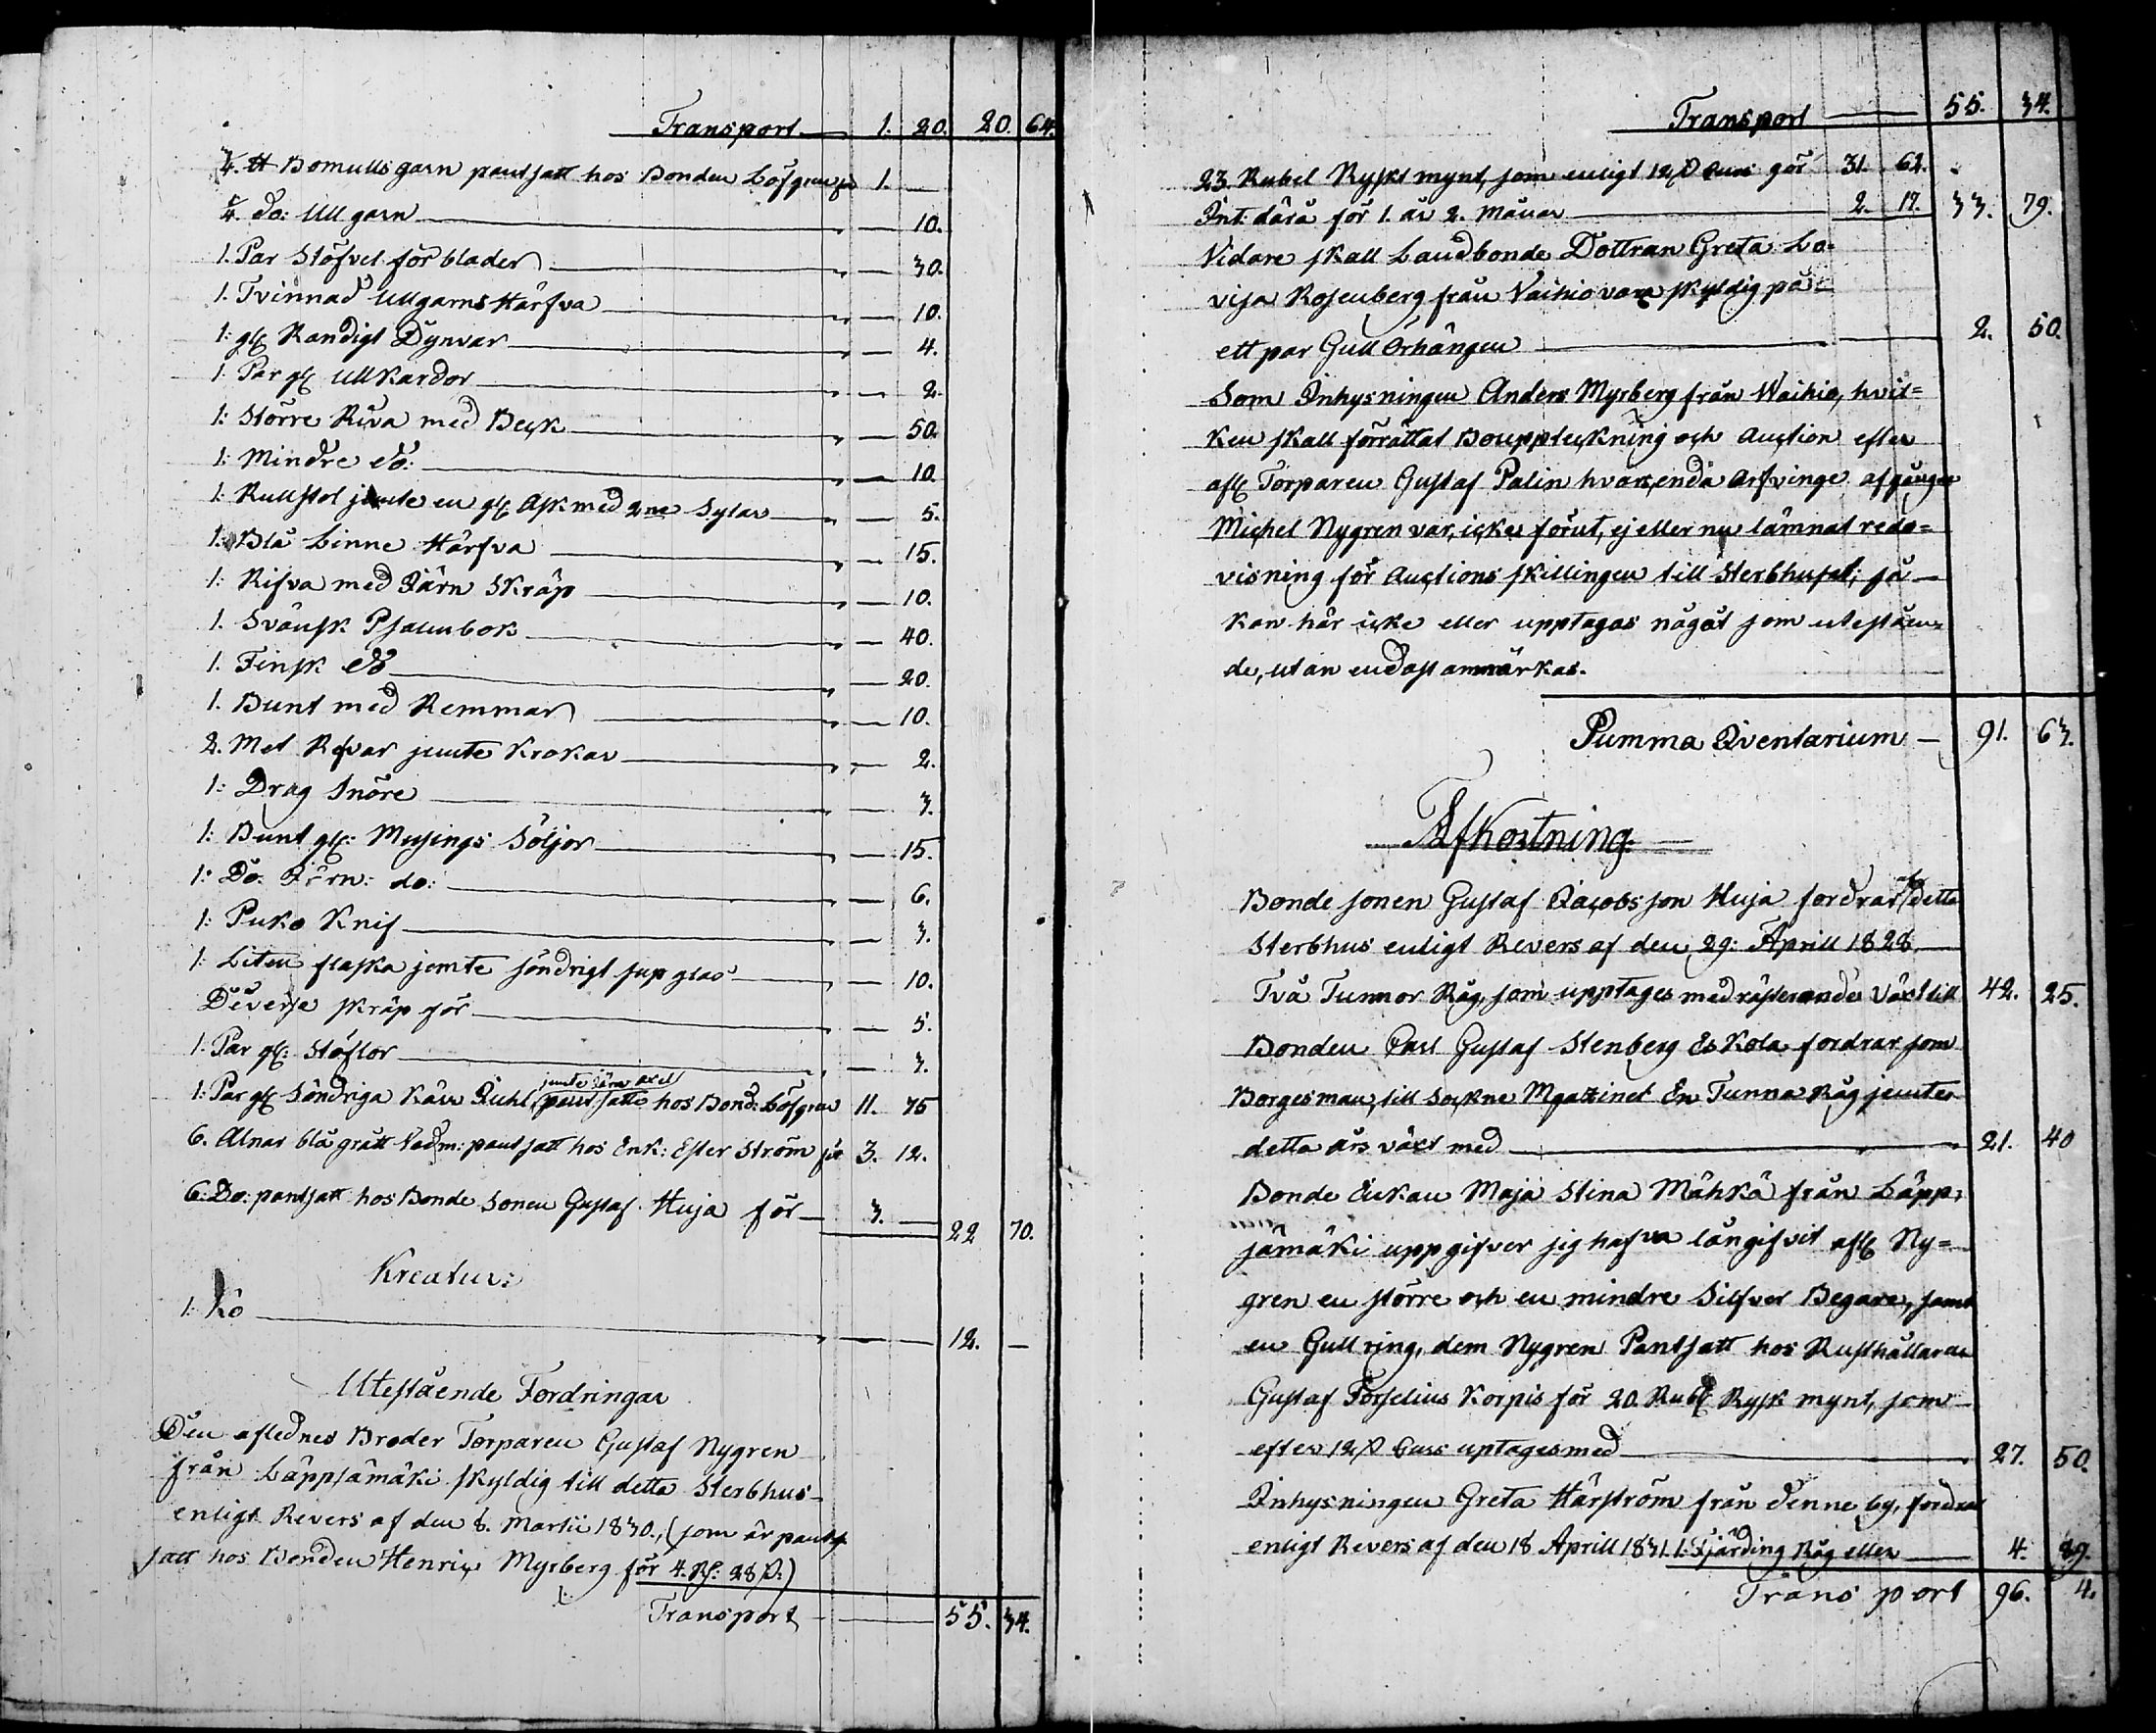 Transport 1. 20. 20. 64.
¾. ℔ Bomulls garn pantsatt hos Bonden Löfgren för 1. —
¼. do: Ull garn — 10.
1. Par Stöfvel förblader — 30.
1. Tvinnad Ullgarns Härfva — 10.
1: gl. Randigt Dynvar — 4.
1. Par gl. Ullkardor — 2.
1: Större Riva med Beck — 50.
1: Mindre do: — 10.
1: Rullstol jemte en gl. Ask med 2ne Sylar — 5.
1: Blå Linne Härfva — 15.
1: Rifva med Järn Skräp — 10.
1. Svänsk Psalmbok — 40.
1. Finsk do — 20.
1. Bunt med Remmar — 10.
2. Met Refvar jemte Krokar — 2.
1: Drag Snöre — 3.
1: Bunt gl: Mesings Söljor — 15.
1: Do. Järn: do: — 6.
1: Puko Knif — 3.
1: Liten flaska jemte söndrigt sup glas — 10.
Diverse skräp för — 5.
1. Par gl: Stöflor — 3.
jemte järn axel
1: Par gl. Söndriga Kärr Juhl, pantsatte hos Bond: Löfgren 11. 75
6. Alnar blå grått Vadm: pantsatt hos Enk: Ester Ström för 3. 12.
6: Do: pantsatt hos Bonde Sonen Gustaf Huja för — 3. — 22 70.
Kreatur:
1: Ko — 12. —
Utestående Fordringar
Den aflednes Broder Torparen Gustaf Nygren
från Läppjämäki skyldig till detta Sterbhus
enligt Revers af den 8. Martii 1830., (som är pant
satt hos Bonden Henric Myrberg för 4. R: 28 K.)
Transport — 55. 34.
Transport — 55. 34.
23 Rubel Ryskt mynt, som enligt 12 Curs gör 31. 62.
Int: därå för 1. år 2. Månar — 2. 17. 33. 79.
Vidare skall Landbonde Dottran Greta Lo=
visa Rosenberg från Vaihio vara skyldig på
ett par Gull Örhängen — 2. 50.
Som Inhysningen Anders Myrberg från Waihio, hvil=
ken skall förrättat Bouppteckning och Auction efter
afl. Torparen Gustaf Palin hvars enda Arfvinge afgångne
Michel Nygren var, icke förut, ej eller nu lämnat redo=
visning för Auctions skillingen till Sterbhuset; så
kan här icke eller upptagas något som utestäen=
de, utan endast anmärkas.
Summa Iventarium — 91. 63.
Afkortning
Bonde sonen Gustaf Jacobsson Huja fordrar af detta
Sterbhus enligt Revers af den 29: Aprill 1828.
Två Tunnor Råg, som upptages med resterande Växt till 42. 25.
Bonden Carl Gustaf Stenberg Eskola fordrar som
Borgesman, till Sockne Mgatzinet En Tunna Råg jemte
detta års växt med — 21. 40
Bonde Enkan Maja Stina Mähkä från Läpp=
jämäki uppgifver sig hafva långifvit afl. Ny=
gren en större och en mindre Silfver Begare, samt
en Gull ring, dem Nygren Pantsatt hos Rusthållaren
Gustaf Forselius Korpis för 20. Rubl Rysk mynt, som
efter 12 Curs uptages med — 27. 50.
Inhysningen Greta Härström från denne by, fordrar
enligt Revers af den 18 Aprill 1831. 1: Fjärding Råg eller — 4. 89.
Transport 96. 4.